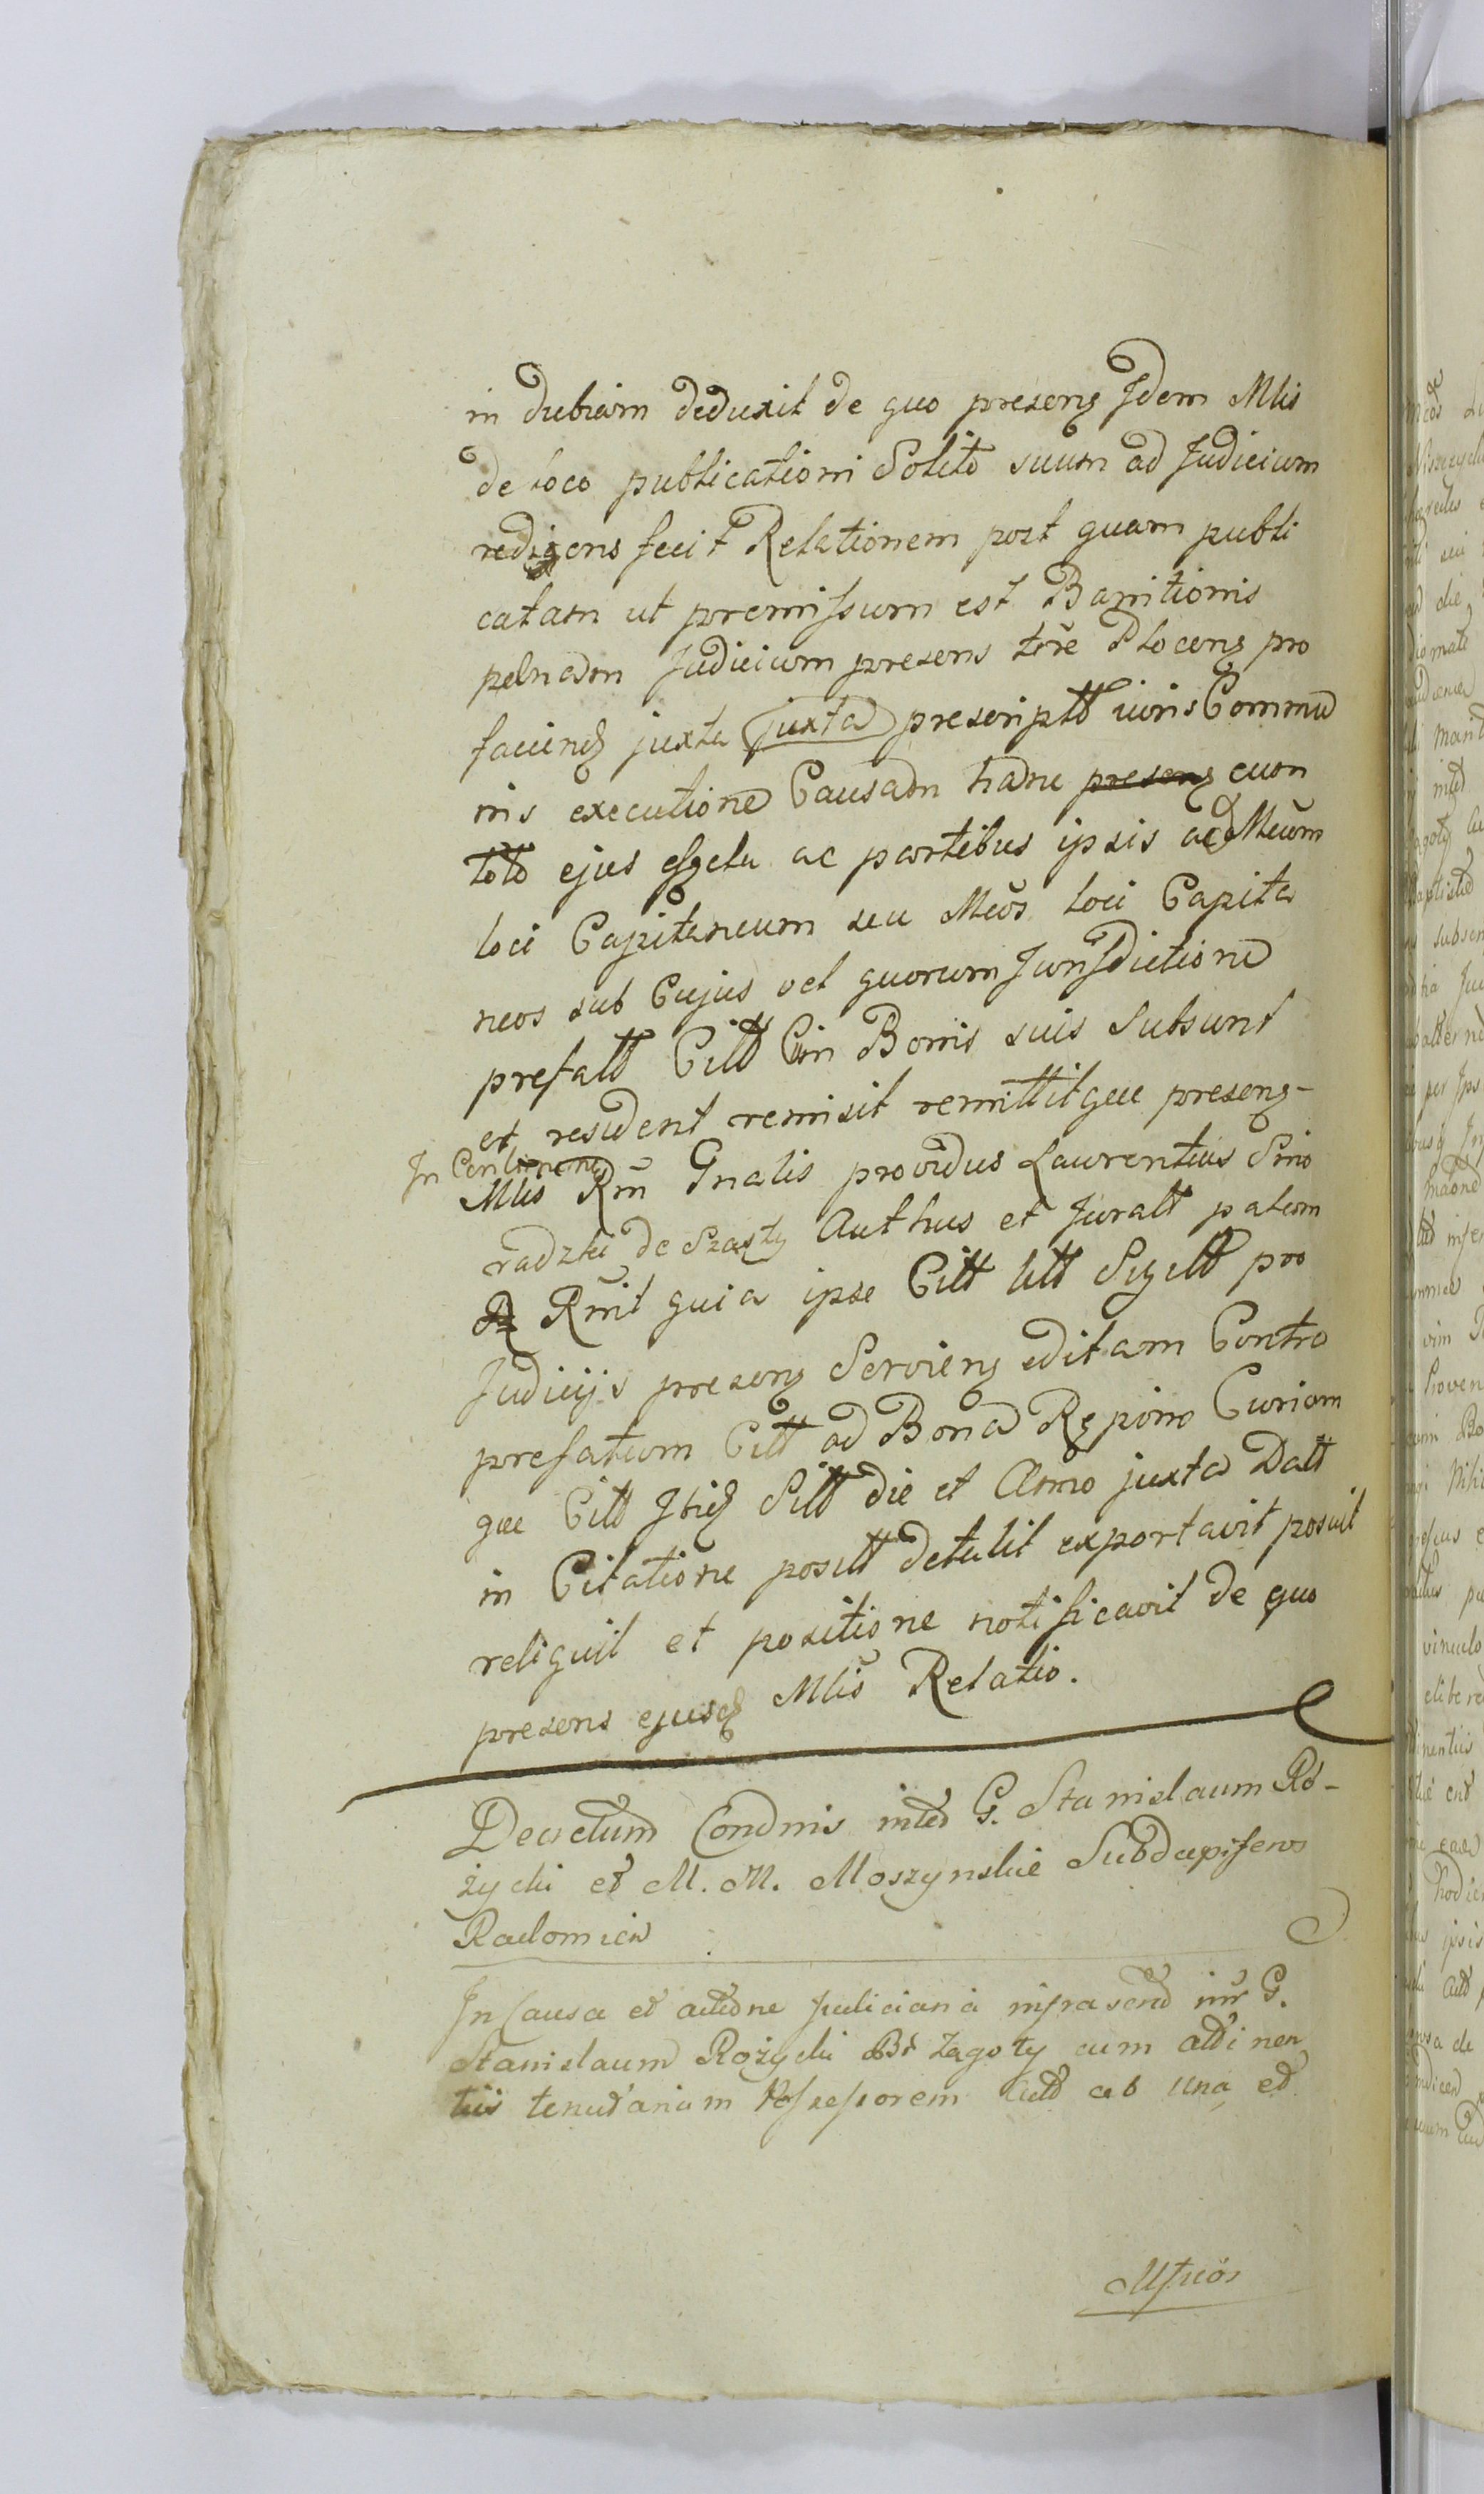 in dubiam deduxit de quo presens Idem Mlis
de loco publicationi Solito suum ad Judicium
redigens fecit Relationem post quam publi
catam ut premissum est Banitionis
pænam Judicium presens tere Plocens pro
faciend juxta juxta prescriptt iuris Commu
nis executione Causam hanc presens cum
toto ejus effectu ac partibus ipsis ad Mcum
loci Capitaneum seu Mcos loci Capita
neos sub Cujus vel quorum Jurisdictione
prefatt Citt in Bonis suis Subsunt
et resident remisit remittitque presens-
In Continenti
Mlis Rni Gnalis providus Laurentius Sino
radzki de Szasty Authus et Juratt palam
Rnit quia ipse Citt litt Sigilt pro
Judicijs presens Serviens editam Contra
prefatum Citt ad Bona Rępino Curiam
que Citt Ibid Sitt die et Anno juxta Datt
in Citatione positt detulit exportavit posuit
reliquit et positione notificavit de quo
presens ejusd Mlis Relatio.
Decretum Condnis inter G. Stanislaum Ró-
życki et M. M. Moszynskie Subdapiferos
Radomien
In Causa et actione Judiciaria infrascrip inr G.
Stanislaum Rożycki Br Zagoty cum attinen
tiis tenutarium Possessorem Actt ab una et
Mficos